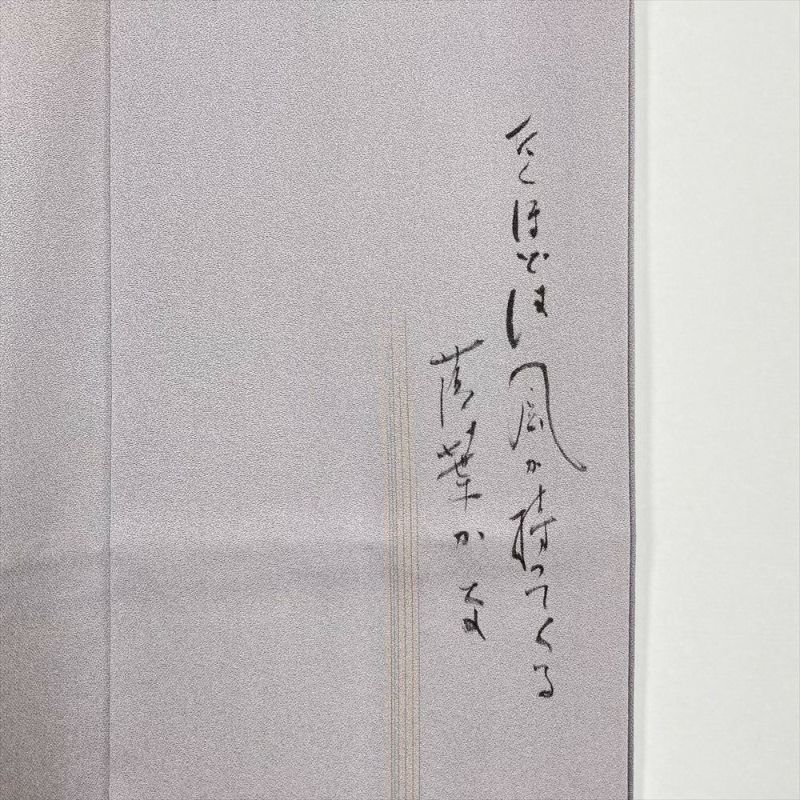 たくほどは風が持ってくる
落葉かな